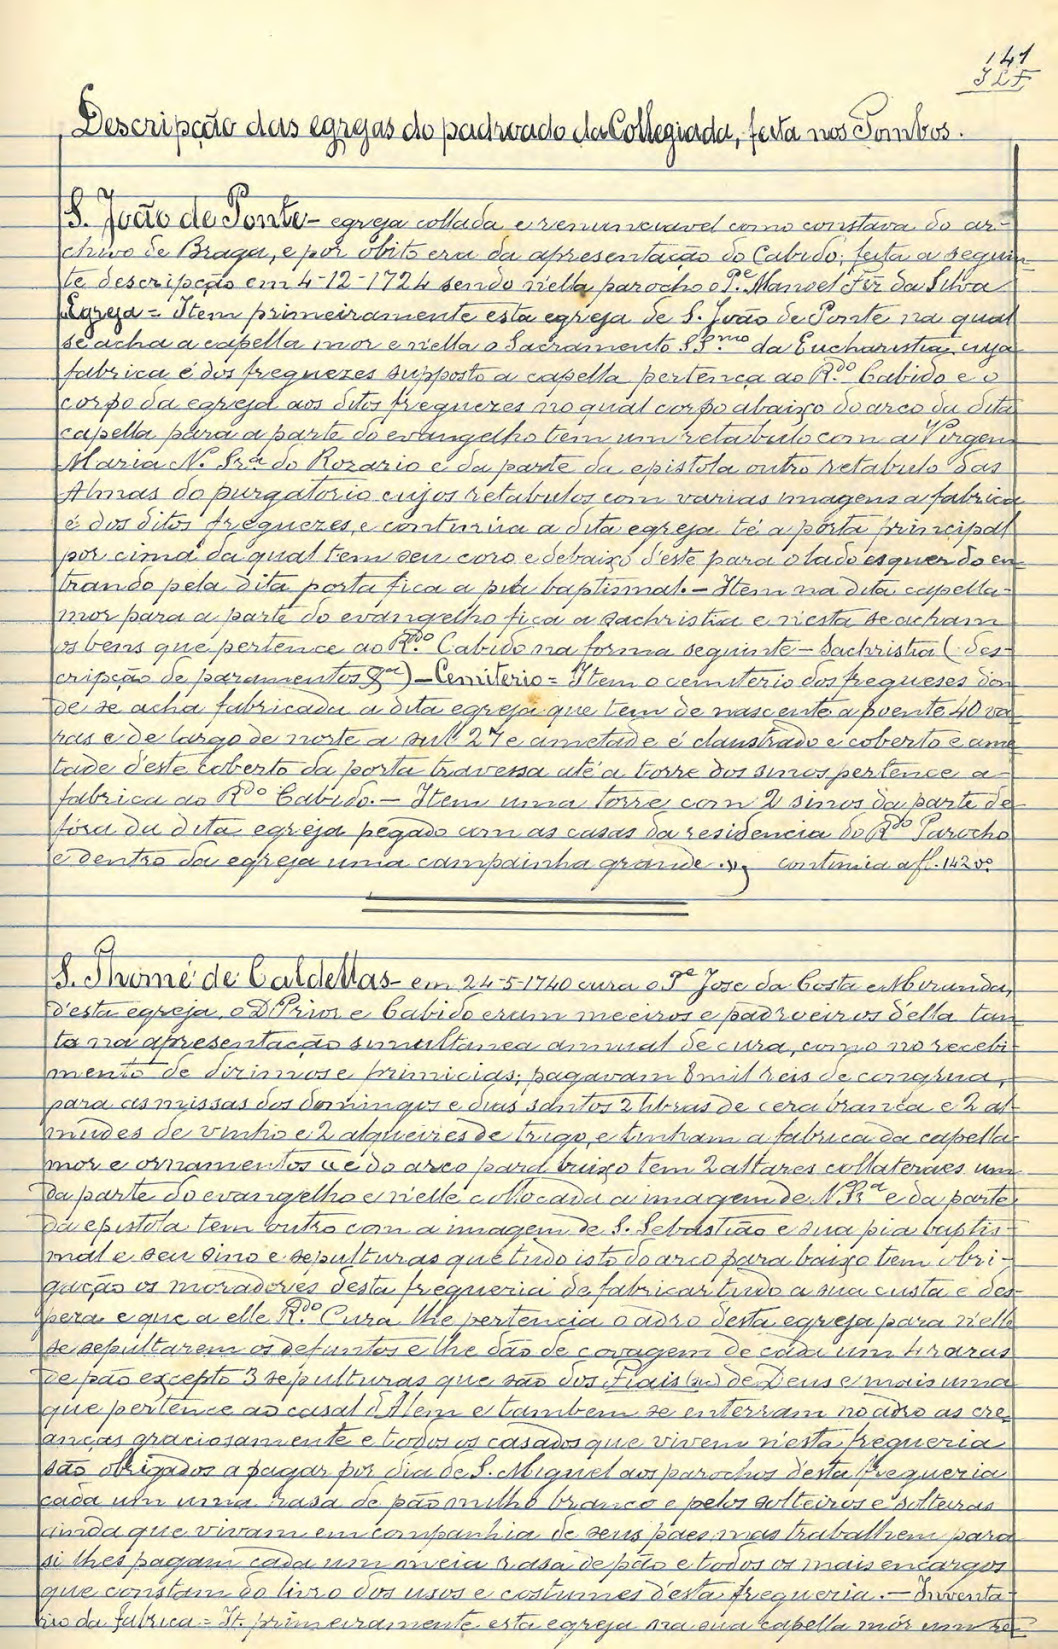 141
J L F
Descripção das egrejas do padroado da Collegiada, feita nos Tombos.
S. João de Ponte - egreja collada e renunciavel como constava do ar-
chivo de Braga, e por obito era da apresentação do Cabido; feita a seguin-
te descripção em 4-12-1724 sendo n'ella parocho o Pe. Manoel Frz da Silva
Egreja = Item primeiramente esta egreja de S. João de Ponte na qual
se acha a capella mor e n'ella o Sacramento SSmo da Eucharistia, cuja
fabrica é dos freguezes supposto a capella pertença ao Rdo. Cabido e o
corpo da egreja aos ditos freguezes no qual corpo abaixo do arco da dita
capella para a parte do evangelho tem um retabulo com a Virgem
Maria N. Sra do Rozario e da parte da epistola outro retabulo das
Almas do purgatorio cujos retabulos com varias imagens a fabrica
é dos ditos freguezes, e continúa a dita egreja té a pórta principal
por cima da qual tem seu coro e debaixo d'este para o lado esquerdo en-
trando pela dita porta fica a pia baptismal. - Item na dita capella-
mor para a parte do evangelho fica a sachristia e n'esta se acham
os bens que pertence ao Rdo. Cabido na forma seguinte - Sachristia (des-
cripção de paramentos &a) - Cemiterio = Item o cemiterio dos freguezes don-
de se acha fabricada a dita egreja que tem de nascente a poente 40 va-
ras e de largo de norte a sul 27 e ametade é claustrado e coberto e ame-
tade d'este coberto da porta travessa até a torre dos sinos pertence a
fabrica ao Rdo Cabido. - Item uma torre com 2 sinos da parte de
fóra da dita egreja pegado com as casas da residencia do Rdo Parocho
e dentro da egreja uma campainha grande .,, continúa a fl. 142 vo.
S. Thomé de Caldellas - em 24-5-1740 cura o Pe José da Costa e Miranda,
d'esta egreja, o D Prior e Cabido eram meeiros e padroeiros d'ella tan-
to na apresentação simultanea annual de cura, como no recebi-
mento de dizimos e primicias; pagavam 8 mil reis de congrua,
para as missas dos domingos e dias santos 2 libras de cera branca e 2 al-
mudes de vinho e 2 alqueires de trigo, e tinham a fabrica da capella-
mor e ornamentos e do arco para baixo tem 2 altares collateraes um
da parte do evangelho e n'elle collocada a imagem de N. Sra e da parte
da epistola tem outro com a imagem de S. Sebastião e sua pia baptis-
mal e seu sino e sepulturas que tudo isto do arco para baixo tem obri-
gação os moradores desta freguezia de fabricar tudo a sua custa e des-
peza e que a elle Rdo. Cura lhe pertencia o adro d'esta egreja para n'elle
se sepultarem os defuntos e lhe dão de covagem de cada um 4 razas
de pão excepto 3 sepulturas que são dos Fiais (sic) de Deus e mais uma
que pertence ao casal d'Alem e tambem se enterram no adro as cre-
anças graciosamente e todos os casados que vivem n'esta freguezia
são obrigados a pagar por dia de S. Miguel aos parochos d'esta freguezia
cada um uma rasa de pão milho branco e pelos solteiros e solteiras
ainda que vivam em companhia de seus paes mas trabalhem para
si lhes pagam cada um meia rasa de pão e todos os mais encargos
que constam do livro dos usos e costumes d'esta freguezia. - Inventa-
rio da fabrica = It. primeiramente esta egreja na sua capella mór um re-